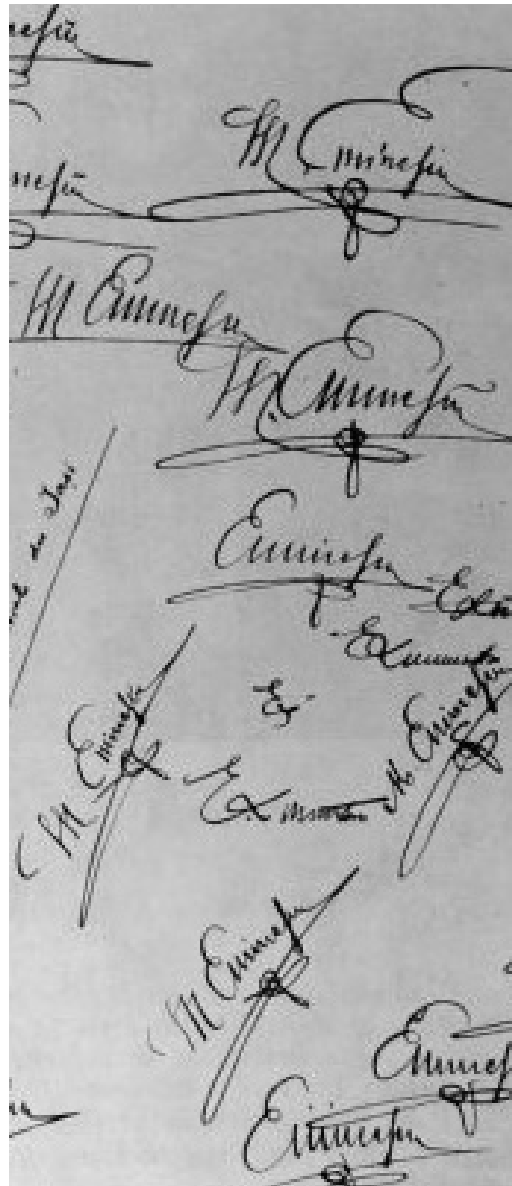 nescu
M Eminescu
nescu
M Eminescu
M. Eminescu
Eminescu
M Eminescu
M Eminescu
M Eminescu
Eminescu
Eminescu